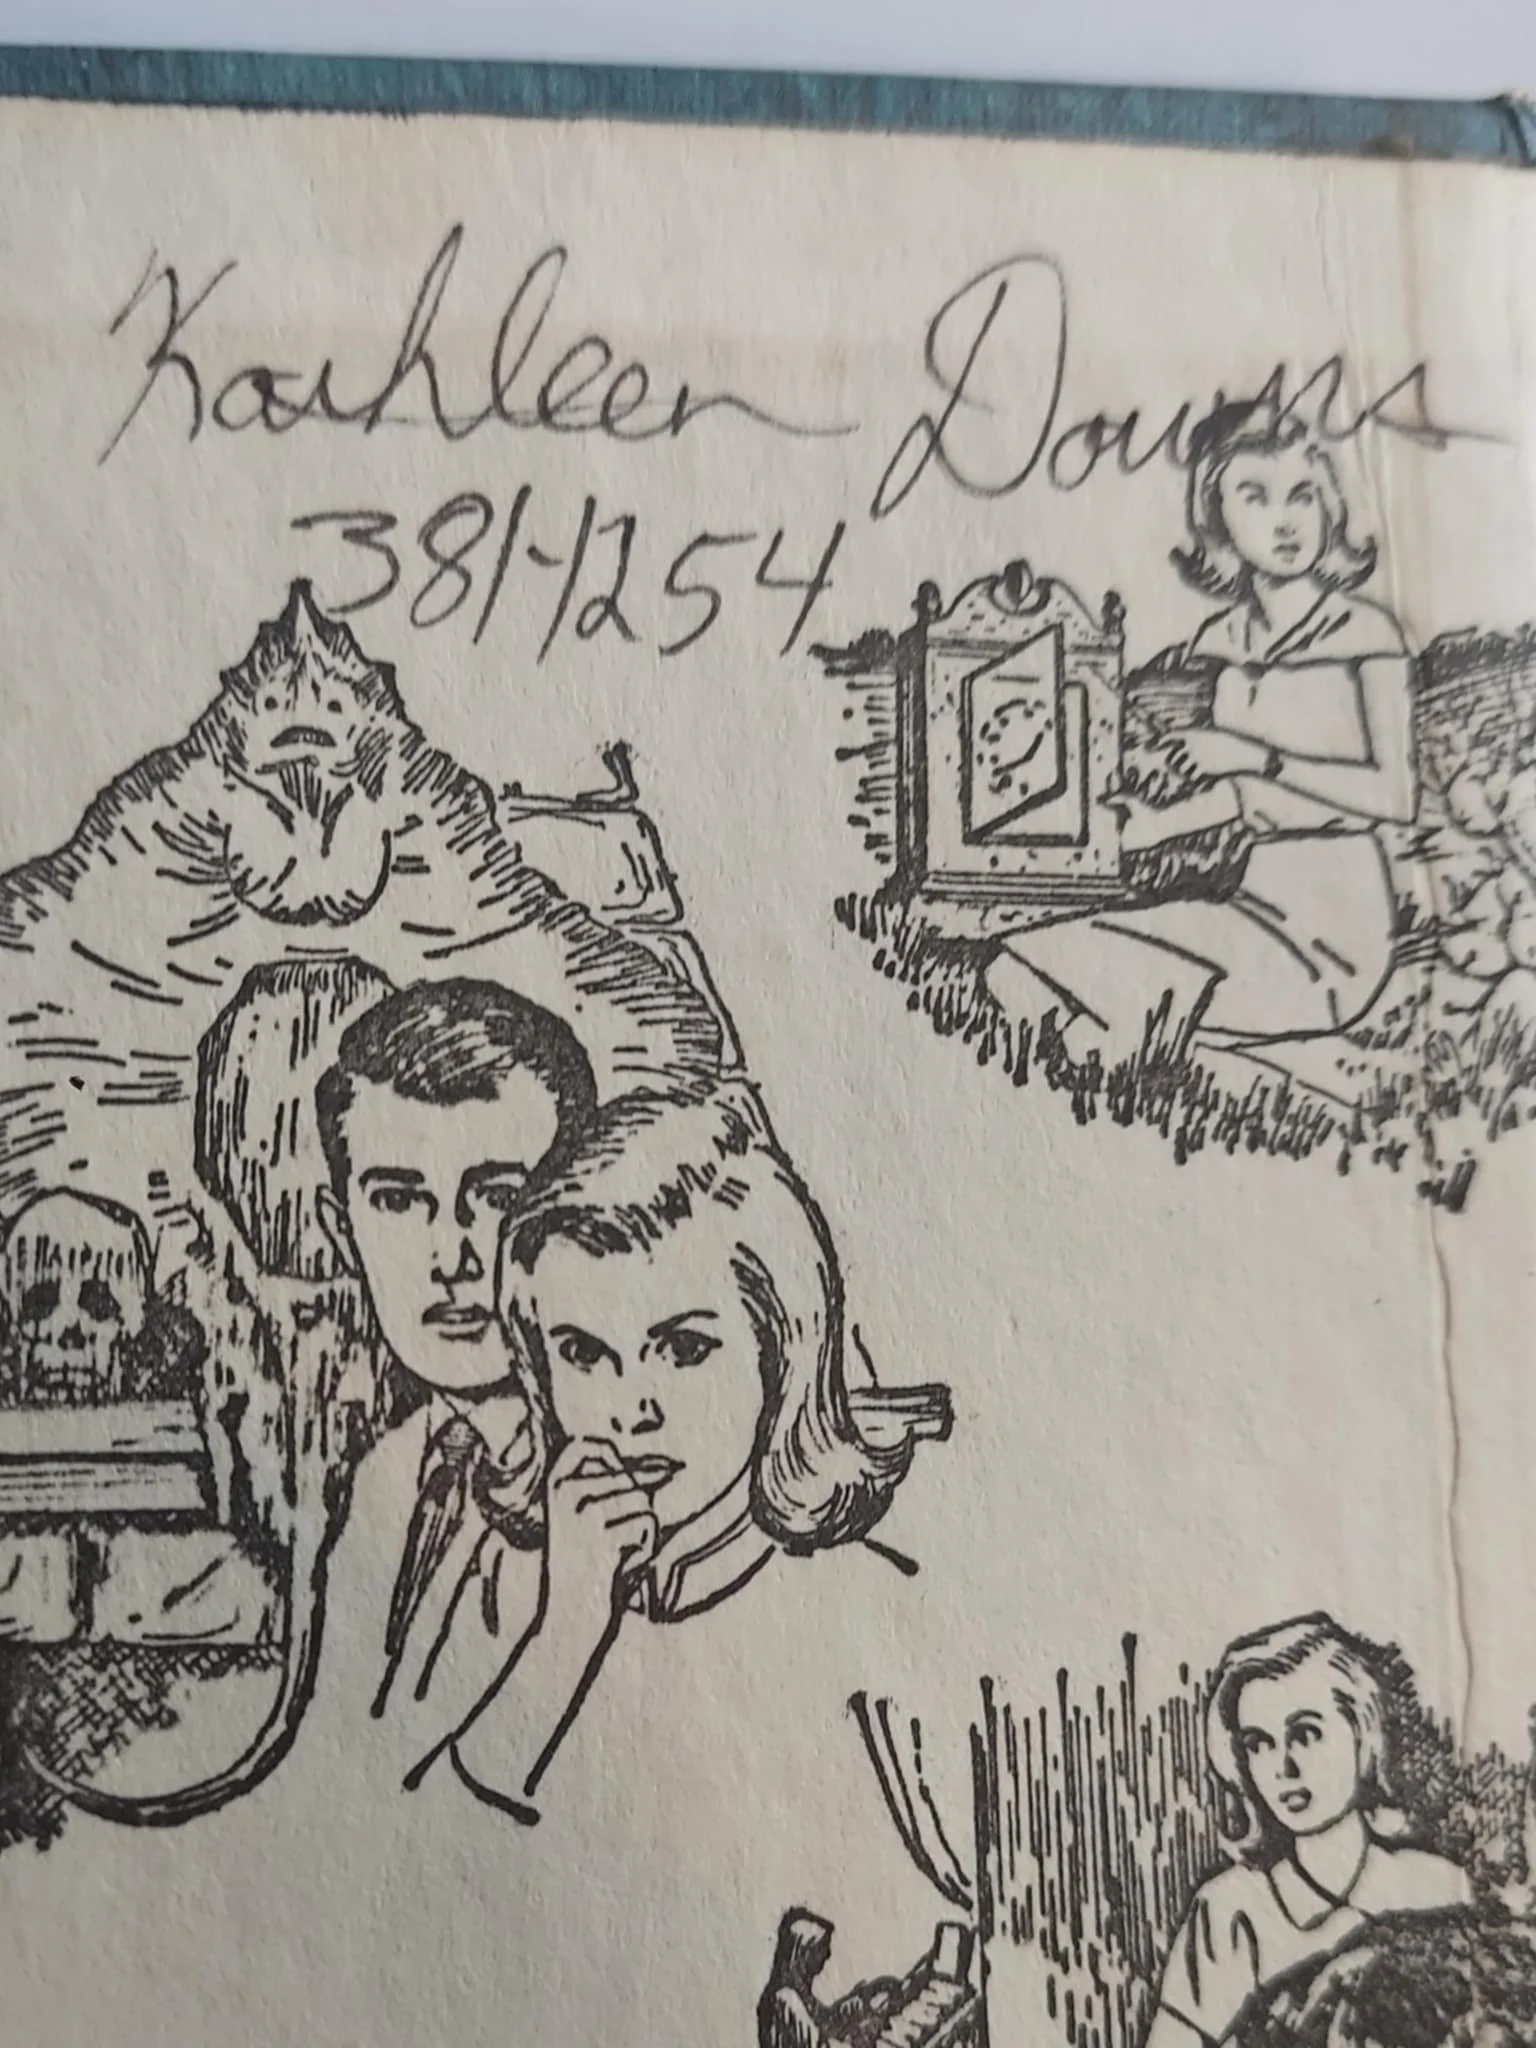 Kathleen Downs
381-1254